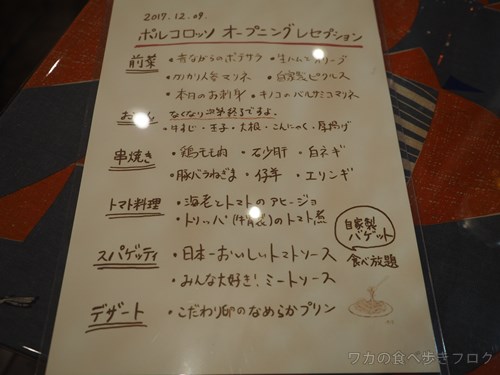 2017.12.09.
ポルコロッソ オープニングレセプション
前菜 ・昔ながらのポテサラ ・生ハムとオリーブ
・カリカリ人参マリネ ・自家製ピクルス
・本日のお刺身 ・キノコのバルサミコマリネ
おでん なくなり次第終了ですよ。
・牛すじ・玉子・大根・こんにゃく・厚揚げ
串焼き ・鶏ももね ・砂肝 ・白ネギ
・豚バラねぎま ・仔羊 ・エリンギ
トマト料理 ・海老とトマトのアヒージョ
・トリッパ(牛胃袋)のトマト煮
自家製
バゲット
食べ放題
スパゲッティ ・日本一おいしいトマトソース
・みんな大好き!ミートソース
デザート ・こだわり卵のなめらかプリン
ワカの食べ歩きブログ